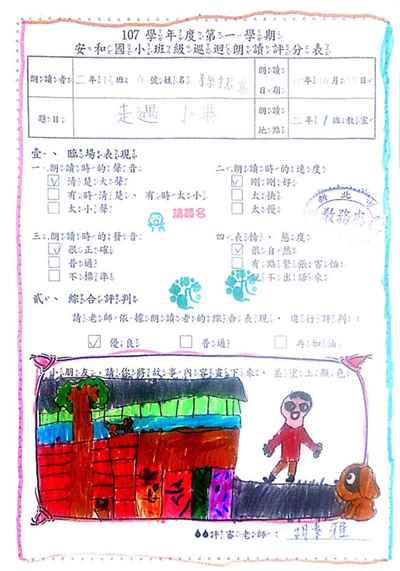 107學年度第一學期
安和國小班級巡迴朗讀評分表
朗讀者 二年 班 號姓名 朗讀日期 年 月 日
題目 走過小巷 朗讀地點 二年1班教室
壹、臨場表現
一、朗讀時的聲音 二、朗讀時的速度
清晰大聲 剛剛好
有時清晰、有時太小 太快
太小聲 太慢
請簽名
新北市
教務處
三、朗讀時的發音 四、表情、態度
很正確 很自然
普通 有點緊張害怕
不標準 說不出話來
貳、綜合評判
請老師依據朗讀者的綜合表現,進行評判
優良 普通 再加油
小朋友,請你將故事內容畫下來,並塗上顏色
評審老師: